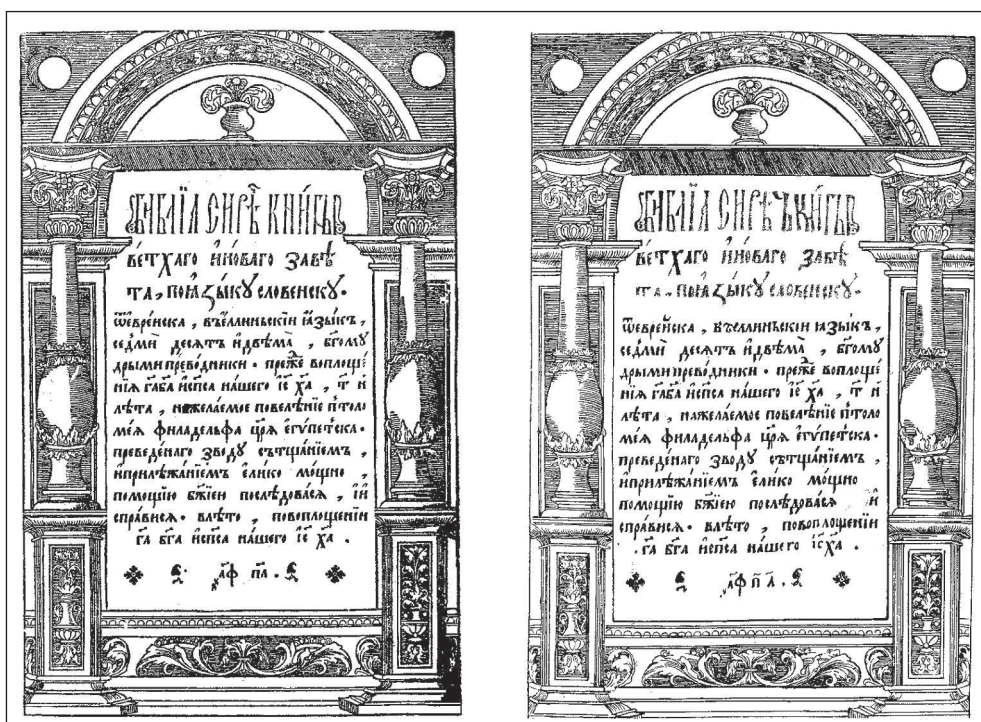 БИБЛІ́А СИРѢ́Ч КНИ́ГЫ
ВЕТХАГО И҆НО́ВАГО ЗАВѢ
ТА, ПОꙖЗЫКꙊ СЛОВЕНСКꙊ.
ѿевре́йска, въе́ллиньскїи ꙗ҆зы́къ,
се́дмь десѧтъ и҆двѣма̀, бг҃омꙋ
дрыми преводники. пре́ж̾е воплоще́
нїѧ гд҇а бг҃а и҆сп҃са на́шего і҆с҃ х҃а, т҃ и҃
лѣта, нажелаемое повелѣ́нїе пто́ло
ме́ѧ филаде́льфа цр҃ѧ е҆гѵпе́тска.
преведе́наго зводꙋ сътща́нїемъ,
и҆прилѣжа́нїемъ е҆лико мо́щно,
помощїю бж҃їею послѣ́довасѧ, и҆и
спра́висѧ. влѣто, повоплоще́нїи
гд҇а бг҃а и҆сп҃са на́шего і҆с҃ х҃а.
҂а҃ф п҃а.
БИБЛІ́А СИРѢ́ЧЬ КНИ́ГЫ
ВЕТХАГО И҆НО́ВАГО ЗАВѢ
ТА, ПОꙖЗЫКꙊ СЛОВЕНСКꙊ.
ѿевре́йска, въе́ллиньскїи ꙗ҆зы́къ,
се́дмь десѧтъ и҆двѣма̀, бг҃омꙋ
дрыми преводники. пре́ж̾е воплоще́
нїѧ гд҇а бг҃а и҆сп҃са на́шего і҆с҃ х҃а, т҃ и҃
лѣта, нажелаемое повелѣ́нїе пто́ло
ме́ѧ филаде́льфа цр҃ѧ е҆гѵпе́тска.
преведе́наго зводꙋ сътща́нїемъ,
и҆прилѣжа́нїемъ е҆лико мо́щно
помощїю бж҃їею послѣ́довасѧ, и҆
спра́висѧ. влѣто, повоплоще́нїи
гд҇а бг҃а и҆сп҃са на́шего і҆с҃ х҃а.
҂а҃ф п҃ а҃.